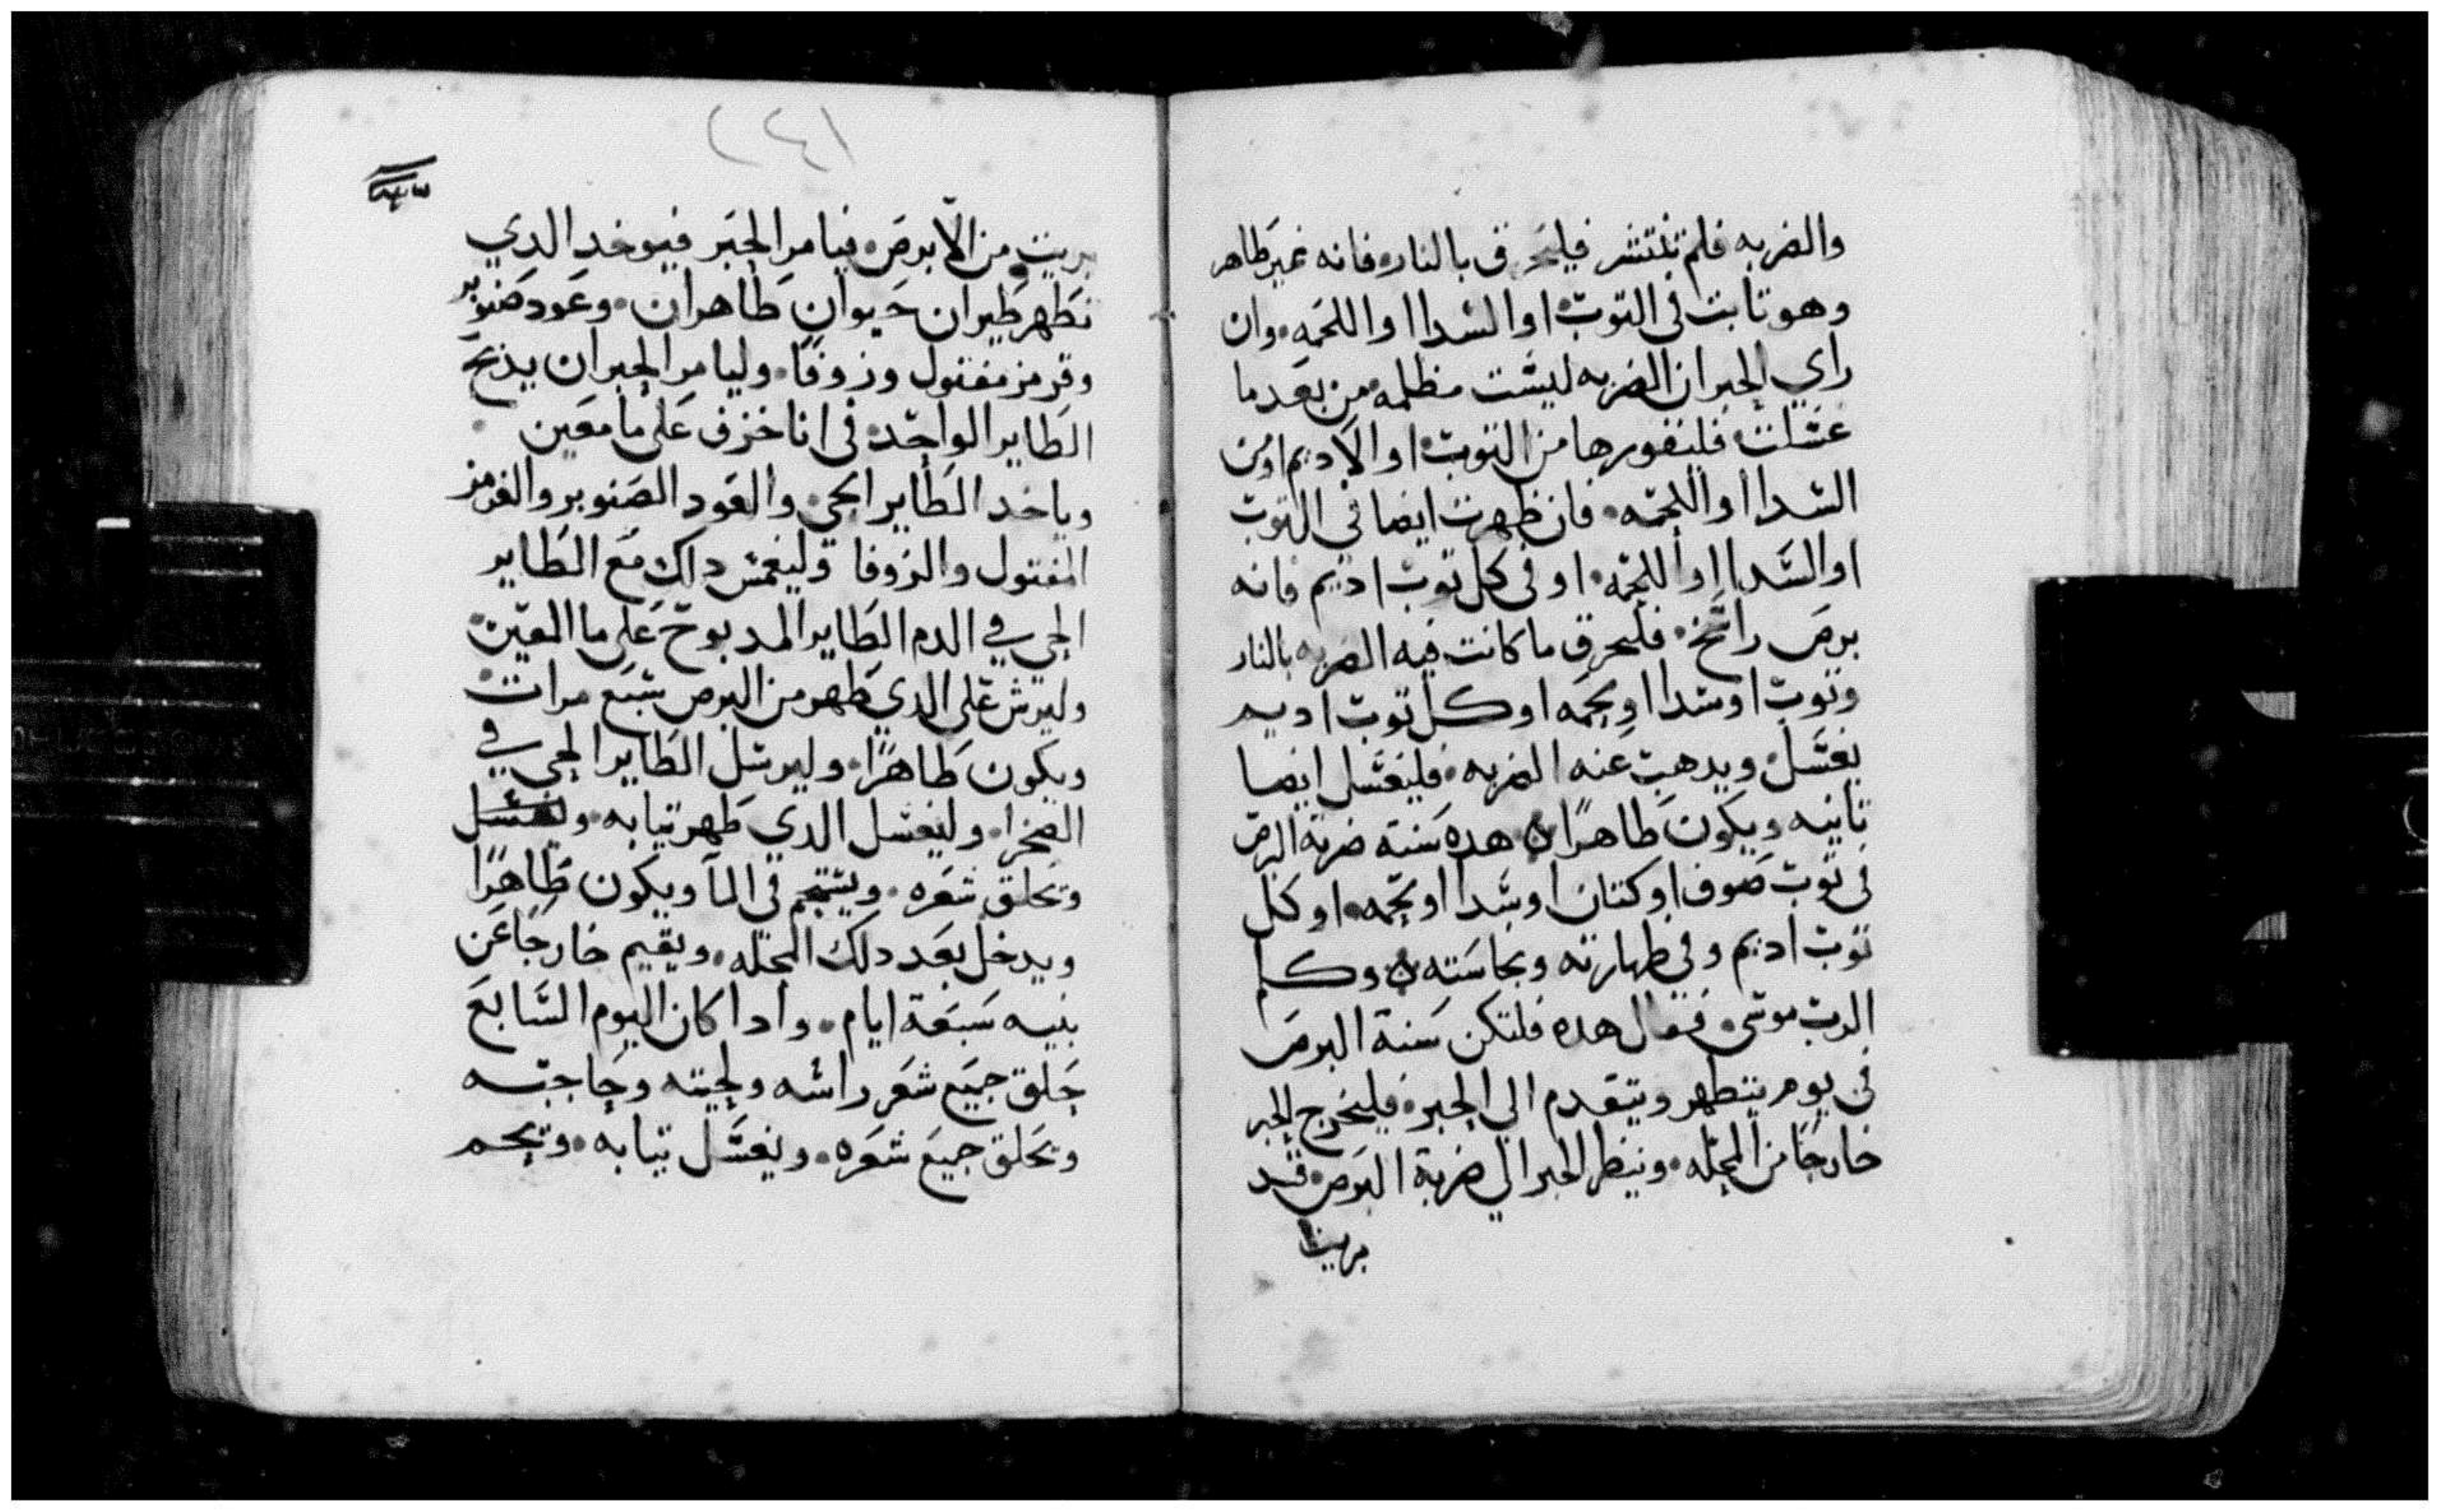 والضربه فلم تنتشر فليحرق بالنار. فانه غير طاهر
وهو تابت في التوب. او السدا او اللحمه. وان
راي الحبر ان الضربه ليست مظلمه من بعد ما
غسلت فلينفورها من التوب. او الاديم او من
السدا او اللحمه. فان ظهرت ايضا في التوب
او السدا او اللحمه. او في كل توب اديم فانه
برص راسخ. فليحرق ما كانت فيه الضربه بالنار
وتوب او سدا او لحمه او كل توب اديم
يغسل. ويدهب عنه الضربه. فليغسل ايضا
تانيه ويكون طاهرًا ن هده سنة ضربة البرص
في توب صوف او كتان او سدا او لحمه. او كل
توب اديم وفي طهارته ونجاسته ن وكلم
الرب موسى. فقال هده فلتكن سنة البرص
في يوم يتطهر ويتقدم الي الحبر. فليخرج الحبر
خارجًا من المحله. وينظر الحبر الي ضربة البرص. قد
بريت
(٢٤١
بريت من الابرص. فيامر الحبر فيوخد الدي
تطهر طيران حيوان طاهران. وعود صنوبر
وقرمز مفتول وزوفا. وليامر الحبر ان يذبح
الطاير الواحد. في انا خزف على ما معين.
وياخد الطاير الحي. والعود الصنوبر والقرمز
المفتول والزوفا وليغمس داك مع الطاير
الحي في الدم الطاير المدبوح على ما المعين.
وليرش على الدي طهر من البرص سبع مرات.
ويكون طاهرًا. وليرسل الطاير الحي في
الصحرا. وليغسل الدي طهر تيابه. ويغسل
وتحلق شعره. ويستحم في المآ ويكون طاهرًا
ويدخل بعد دلك المحله. ويقيم خارجًا عن
بيته سبعة ايام. وادا كان اليوم السابع
حلق جميع شعر راسه ولحيته وحاجبه
وتحلق جميع شعره. ويغسل تيابه. وتحم